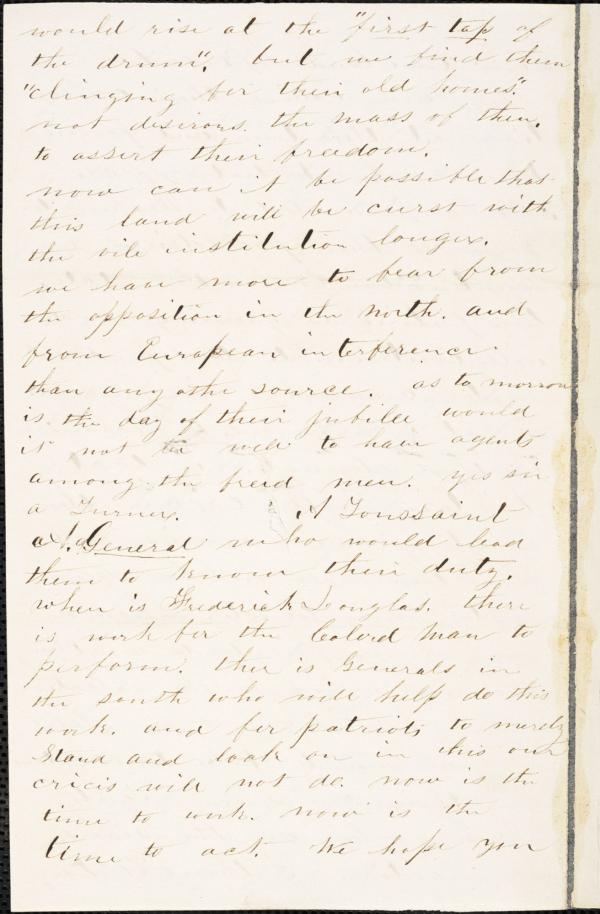 would rise at the "first tap of
the drum". but we find them
"clinging for their old homes".
not desirous. the mass of them.
to assert their freedom.
now can it be possible that
this land will be curst with
the vile institution longer.
we have more to bear from
the opposition in the north. and
from European interference
than any othe source. as to morrow
is the day of their jubilee would
it not be well to have agents
among the freed men. yes sir
a Turner. A Toussaint
a General who would lead
them to know their duty.
when is Frederick Douglas. there
is work for the Colord man to
perform. ther is Generals in
the south who will help do this
work. and for patriots to merely
stand and look on in this our
cricis will not do. now is the
time to work. now is the
time to act. We hope you